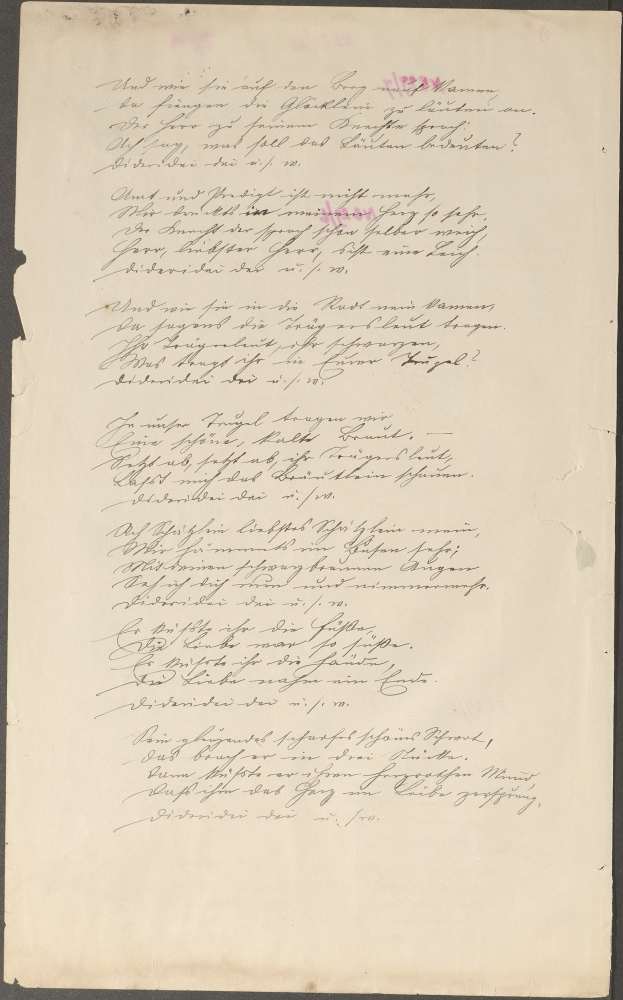 Und wie sie auf den Berg nauf kamen,
da fiengen die Glöcklein zu läuten an.
Der Herr zu seinem Knechte sprach:
Ach sag, was soll das Läuten bedeuten?
dideridei dei u. s. w.
Amt und Predigt ist nicht mehr,
Mir druckts in meinem Herz so sehr,
Der Knecht der sprach schon selber weich,
Herr, liebster Herr, s'ist eine Leich'.
dideridei dei u. s. w.
Und wie sie in die Stadt nein kamen,
da sagens die Trägersleut tragen.
Ihr Trägersleut, ihr schwarzen,
Was tragt ihr in Eurer Trugel?
dideridei dei u. s. w.
In unser Trugel tragen wir
Eine schöne, kalte Braut. —
Setzt ab, setzt ab, ihr Trägersleut,
Lasst mich das Bräutlein schauen.
dideridei dei u. s. w.
Ach Schätzlein liebstes Schätzlein mein,
Mir im Busen sehr;
Mit deinen schwarzbraunen Augen
Seh ich dich nun und nimmermehr.
dideridei dei u. s. w.
Er küsste ihr die Füße,
Die Liebe war so süße.
Er küsste ihr die Hände,
Die Liebe nahm ein Ende.
dideridei dei u. s. w.
Sein glänzendes scharfes schönes Schwert,
das brach er in drei Stücke.
dann küsste er ihren herzrothen Mund,
dass ihm das Herz im Leibe zersprang.
dideridei dei u. s. w.